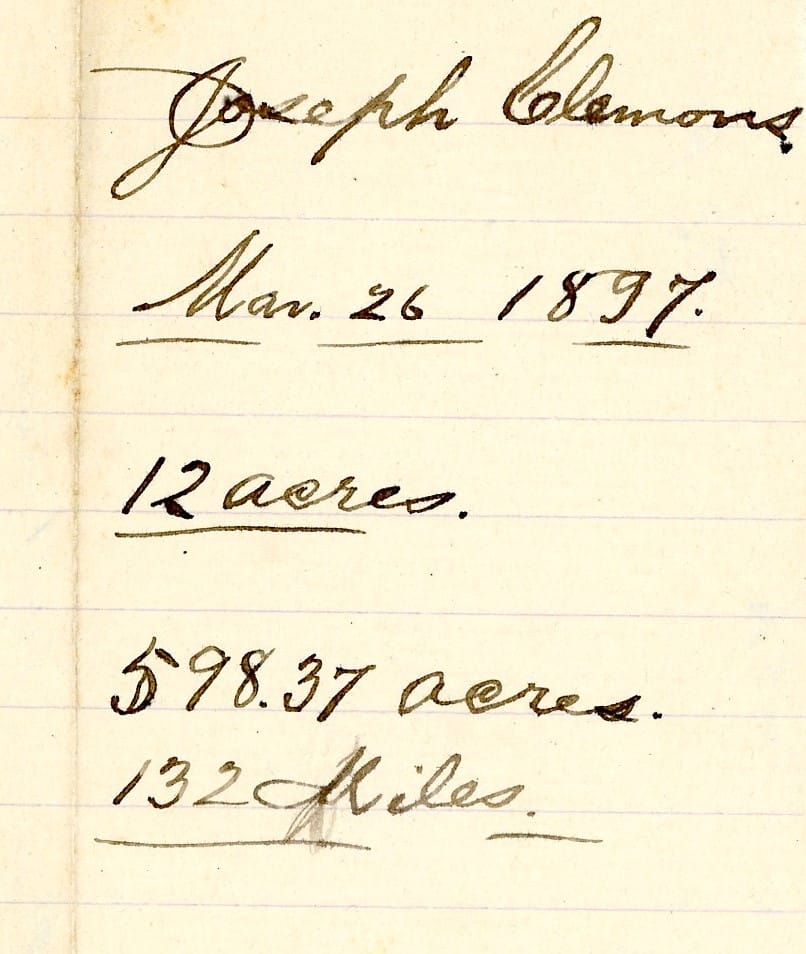 Joseph Clemons.
Mar. 26 1897.
12 acres.
598.37 acres.
132 Miles.